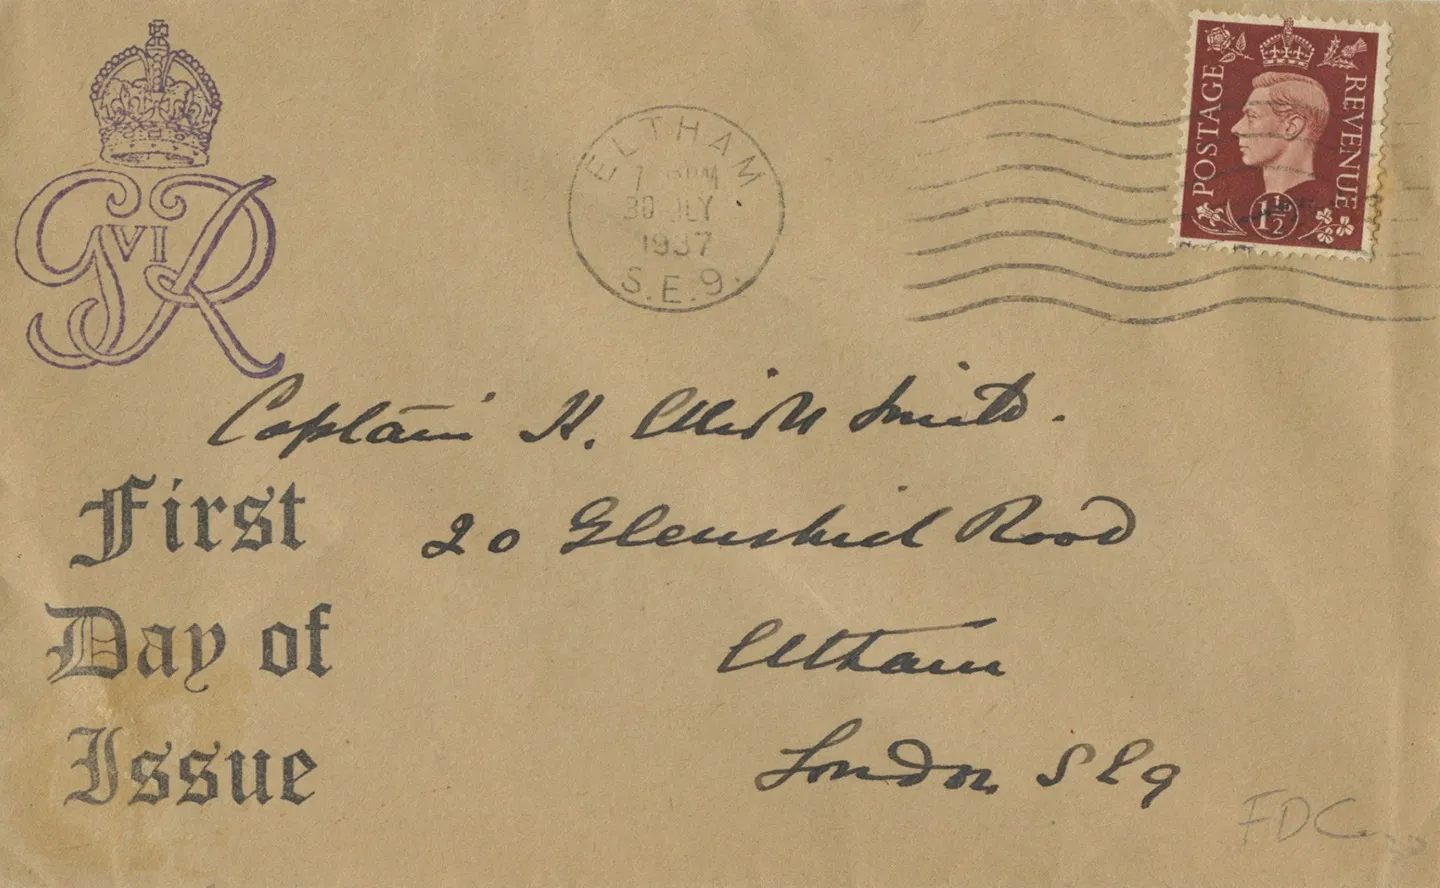 G VI R
ELTHAM
30 JLY
1937
S.E.9.
POSTAGE
REVENUE
1½
Captain H. Elliott Smith.
20 Glenshiel Road
Eltham
London S E 9
First
Day of
Issue
FDC